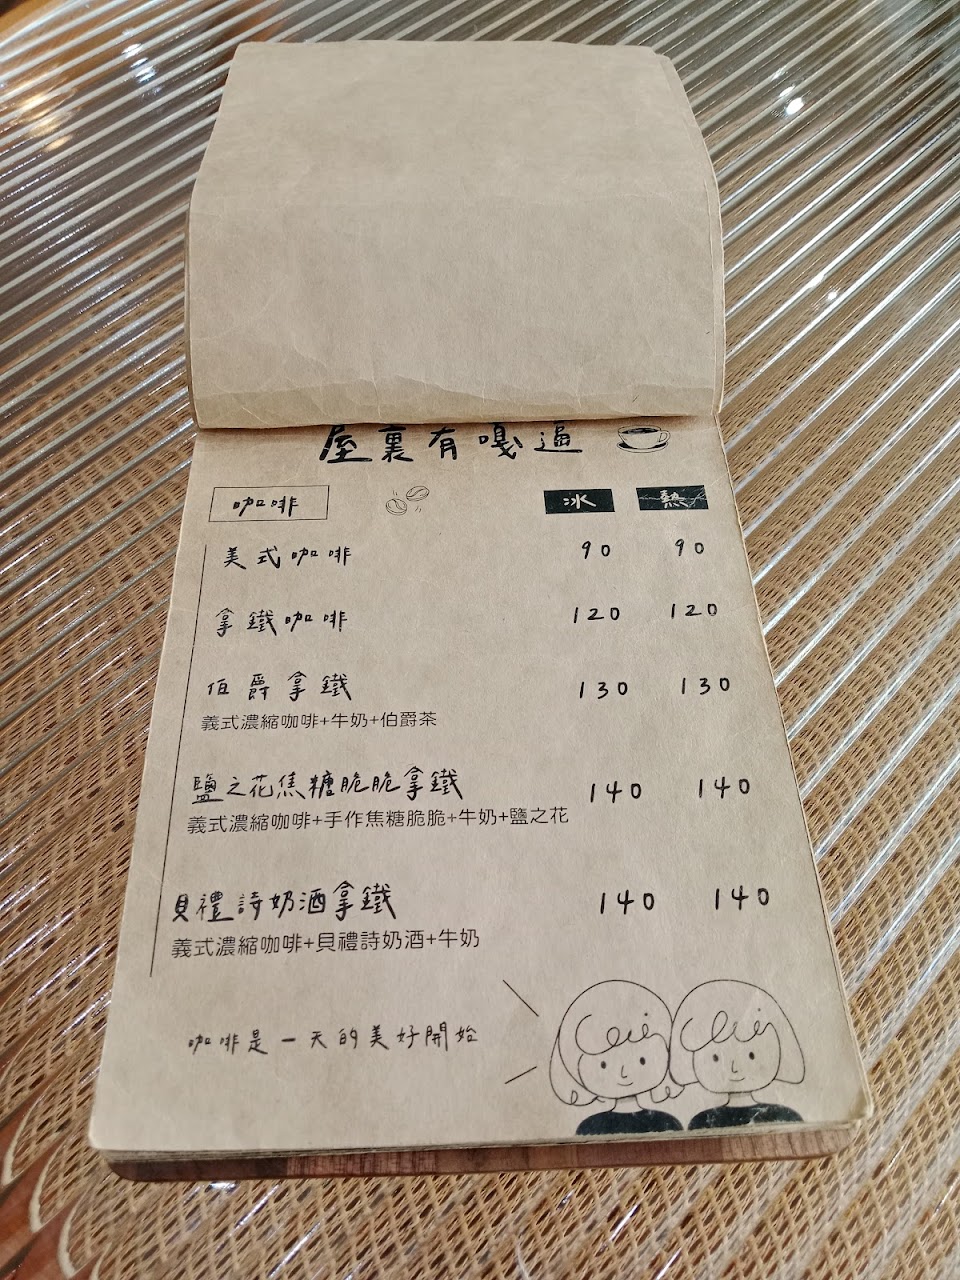 屋裏有嘎逼
咖啡 冰 熱
美式咖啡 90 90
拿鐵咖啡 120 120
伯爵拿鐵 130 130
義式濃縮咖啡+牛奶+伯爵茶
鹽之花焦糖脆脆拿鐵 140 140
義式濃縮咖啡+手作焦糖脆脆+牛奶+鹽之花
貝禮詩奶酒拿鐵 140 140
義式濃縮咖啡+貝禮詩奶酒+牛奶
咖啡是一天的美好開始